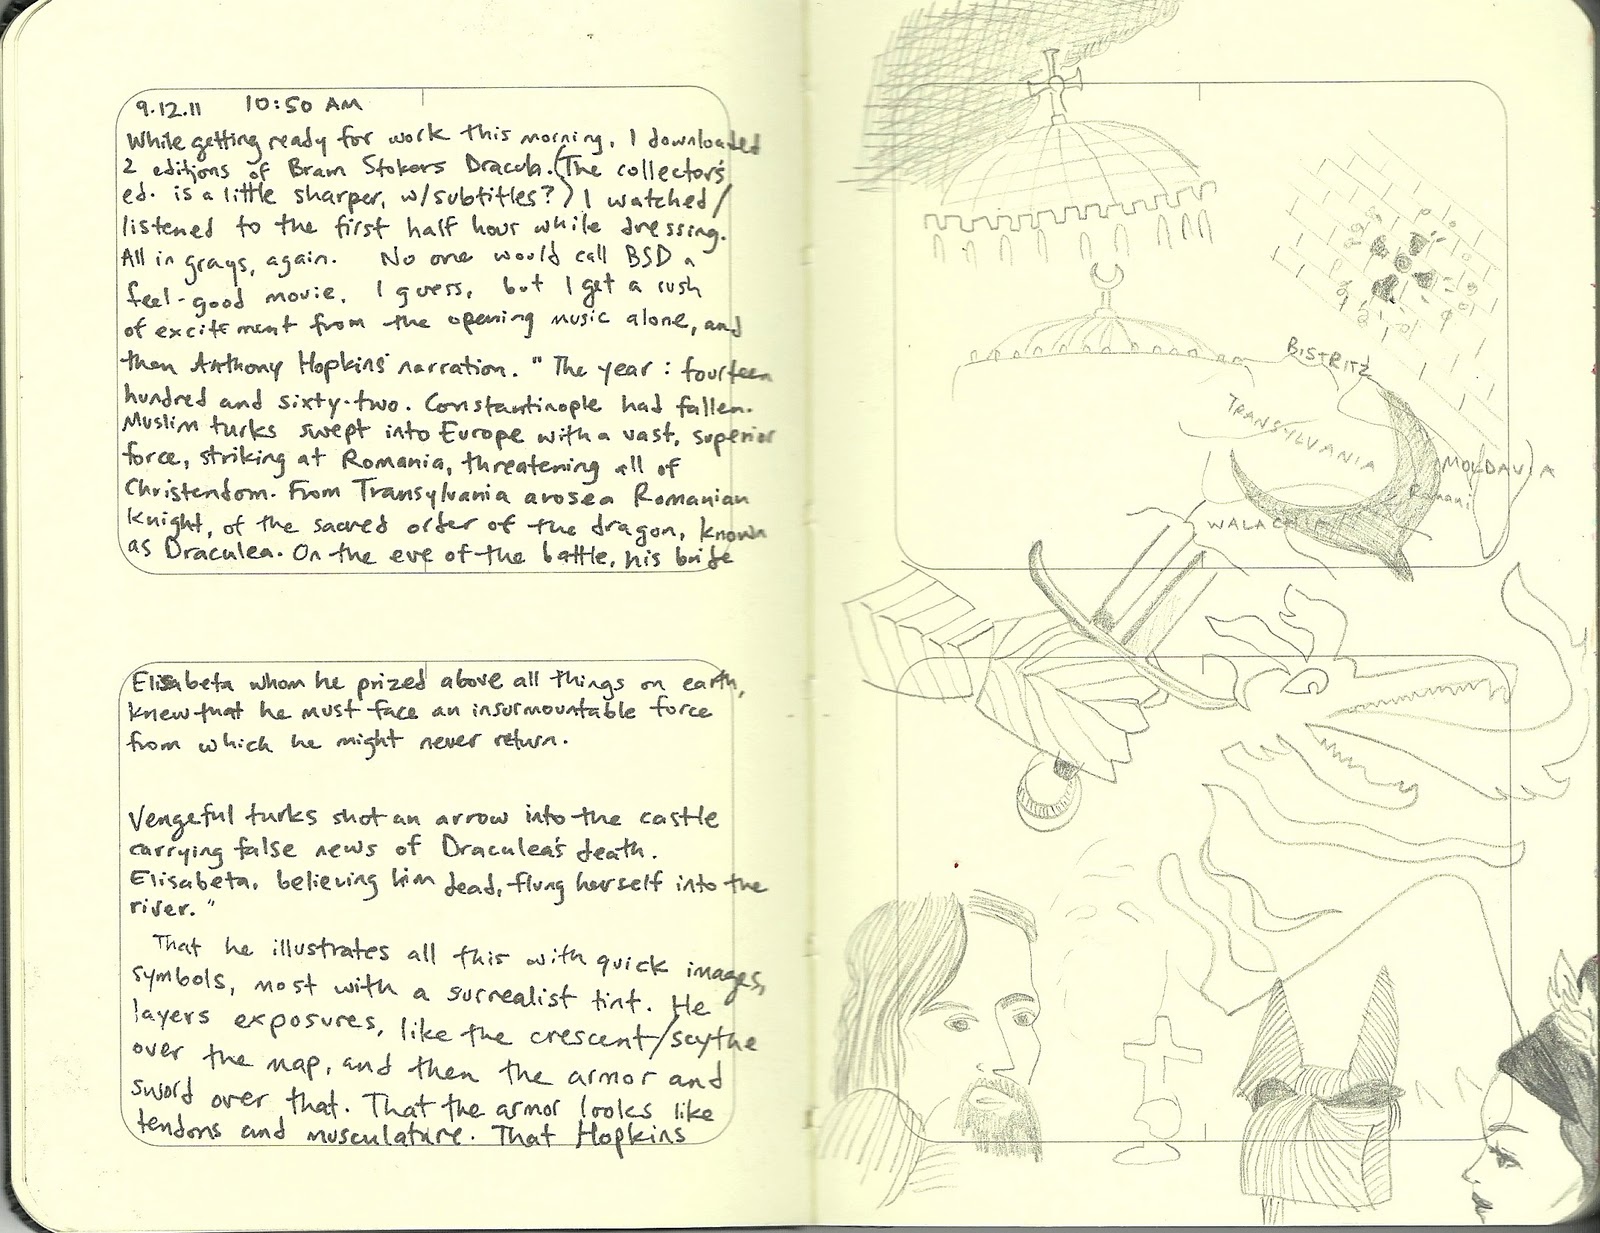 9.12.11 10:50 AM
While getting ready for work this morning, I downloaded
2 editions of Bram Stokers Dracula. (The collector's
ed. is a little sharper, w/subtitles?) I watched/
listened to the first half hour while dressing.
All in grays, again. No one would call BSD a
feel-good movie, I guess, but I get a rush
of excitement from the opening music alone, and
then Anthony Hopkins' narration. "The year: fourteen
hundred and sixty-two. Constantinople had fallen.
Muslim turks swept into Europe with a vast, superior
force, striking at Romania, threatening all of
Christendom. From Transylvania arose a Romanian
Knight, of the sacred order of the dragon, known
as Draculea. On the eve of the battle, his bride
Elisabeta whom he prized above all things on earth,
knew that he must face an insurmountable force
from which he might never return.
Vengeful turks shot an arrow into the castle
carrying false news of Draculea's death.
Elisabeta, believing him dead, flung herself into the
river."
That he illustrates all this with quick images,
symbols, most with a surrealist tint. He
layers exposures, like the crescent/scythe
over the map, and then the armor and
sword over that. That the armor looks like
tendons and musculature. That Hopkins
BISTRITZ
TRANSYLVANIA
MOLDAVIA
Romani
WALACHIA